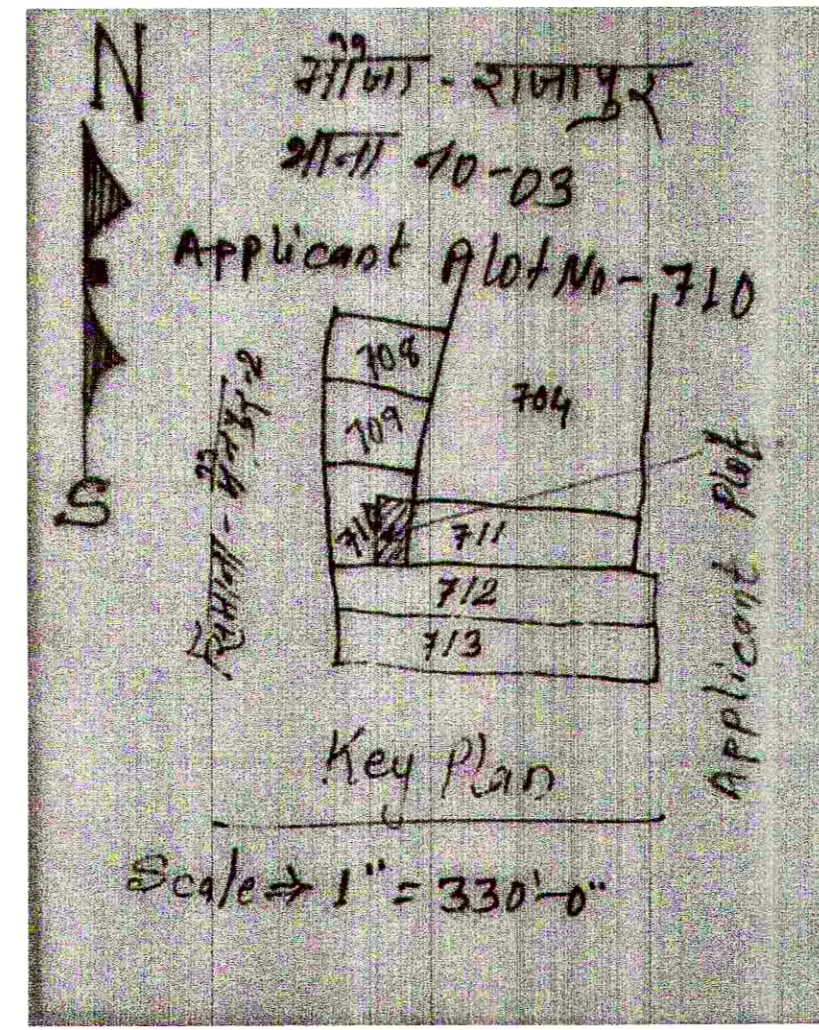 N
मौजा - राजापुर
थाना न0-03
Applicant Plot No - 710
708
709
704
710
711
712
713
S
सिमाना -
Applicant Plot
Key Plan
Scale ⇒ 1" = 330'-0"